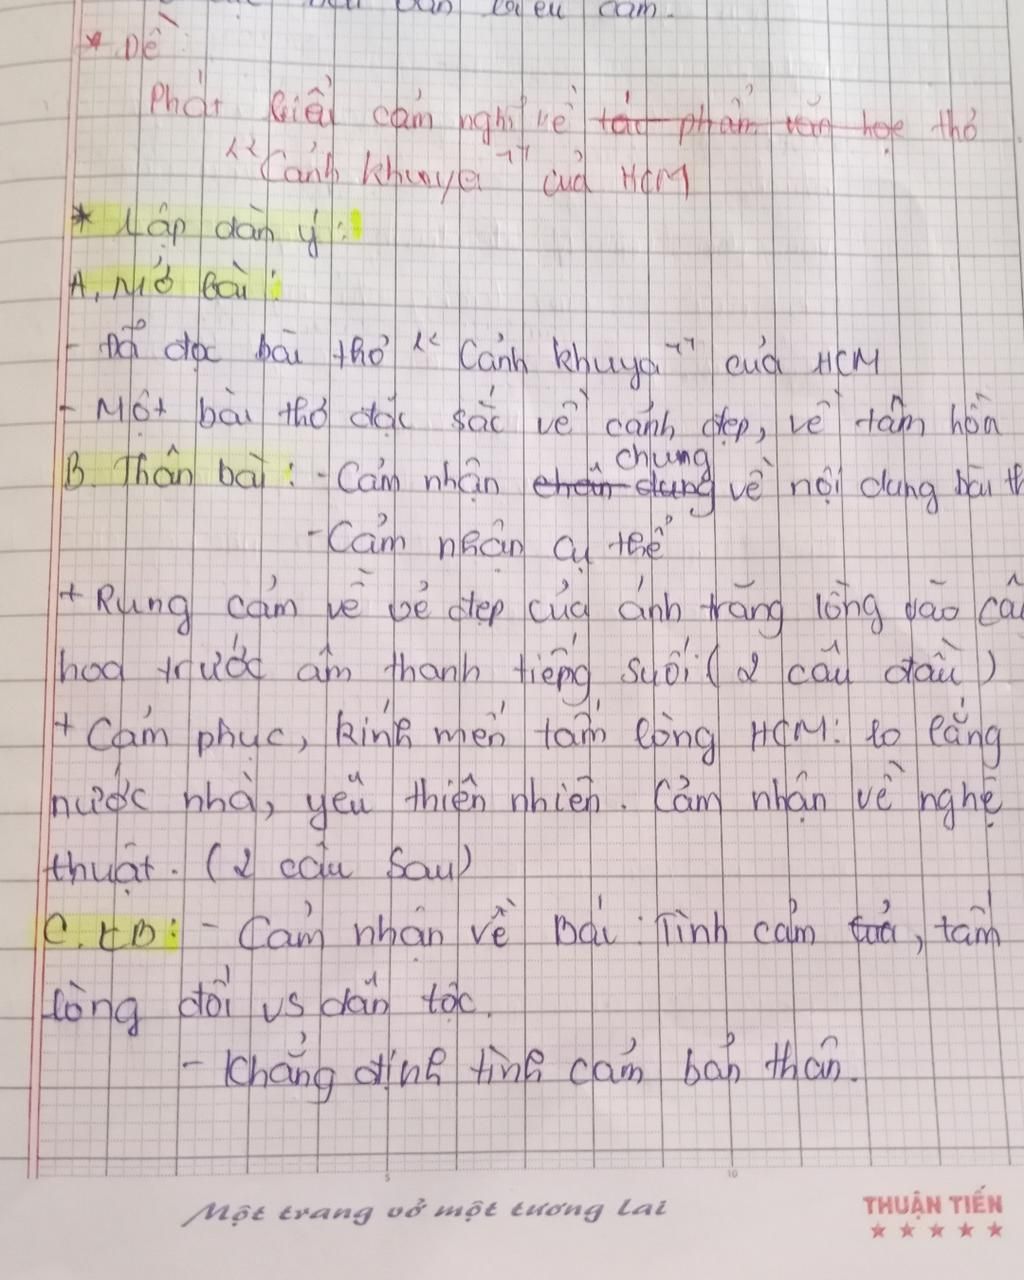 văn biểu cảm.
* Đề:
Phát biểu cảm nghĩ về tác phẩm văn học thơ
"Cảnh khuya" của HCM
* Lập dàn ý:
A, Mở bài:
- Đã đọc bài thơ "Cảnh khuya" của HCM
- Một bài thơ đặc sắc về cảnh đẹp, về tâm hồn
chung
B. Thân bài: - Cảm nhận chân dung về nội dung bài th
- Cảm nhận cụ thể
+ Rung cảm về vẻ đẹp của ánh trăng lồng vào câ
hoa trước âm thanh tiếng suối (2 câu đầu)
+ Cảm phục, kính mến tấm lòng HCM: lo lắng
nước nhà, yêu thiên nhiên. Cảm nhận về nghệ
thuật. (2 câu sau)
C. KB: - Cảm nhận về Bác: Tình cảm của, tấm
lòng đối vs dân tộc.
- Khẳng định tình cảm bản thân.
5 10
Một trang vở một tương lai
THUẬN TIẾN